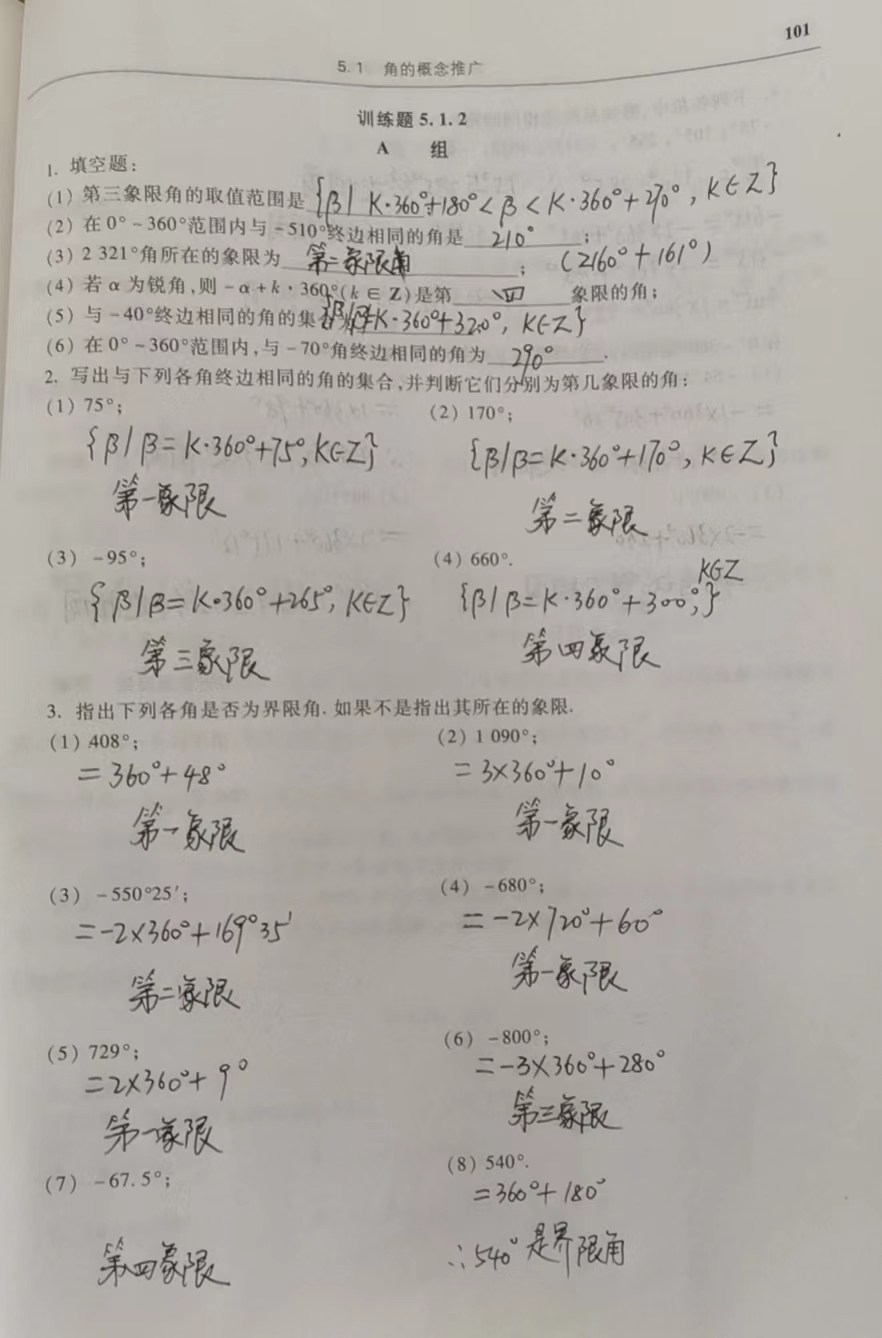 101
5.1 角的概念推广
训练题 5.1.2
A 组
1. 填空题:
(1) 第三象限角的取值范围是 {β| K·360°+180°<β<K·360°+270°, K∈Z}
(2) 在 0° ~ 360°范围内与 -510°终边相同的角是 210° ;
(3) 2 321°角所在的象限为 第二象限角 ; (2160°+161°)
(4) 若 α 为锐角,则 -α + k · 360°(k ∈ Z)是第 四 象限的角;
(5) 与 -40°终边相同的角的集合为 {β|β=K·360°+320°, K∈Z}
(6) 在 0° ~ 360°范围内,与 -70°角终边相同的角为 290° .
2. 写出与下列各角终边相同的角的集合,并判断它们分别为第几象限的角:
(1) 75°; (2) 170°;
{β|β=K·360°+75°, K∈Z} {β|β=K·360°+170°, K∈Z}
第一象限 第二象限
(3) -95°; (4) 660°.
{β|β=K·360°+265°, K∈Z} {β|β=K·360°+300°, K∈Z}
第三象限 第四象限
3. 指出下列各角是否为界限角. 如果不是指出其所在的象限.
(1) 408°; (2) 1 090°;
=360°+48° =3×360°+10°
第一象限 第一象限
(3) -550°25′; (4) -680°;
=-2×360°+169°35′ =-2×720°+60°
第二象限 第一象限
(5) 729°; (6) -800°;
=2×360°+9° =-3×360°+280°
第一象限 第三象限
(7) -67.5°; (8) 540°.
=360°+180°
第四象限 ∴540°是界限角